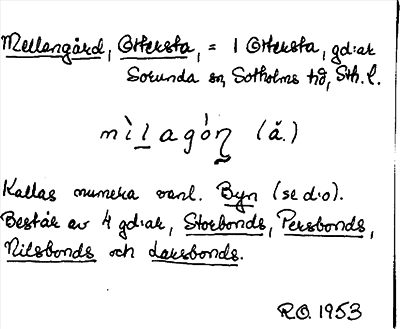 Mellangård, Otteksta, = 1 Otteksta, gd:ar
Sorunda sn, Sotholms hd, Sth. l.
mìlagón (ă.)
Kallas numera vanl. Byn (se d:o).
Består av 4 gd:ar, Storbonds, Persbonds,
Nilsbonds och Larsbonds.
R.O. 1953